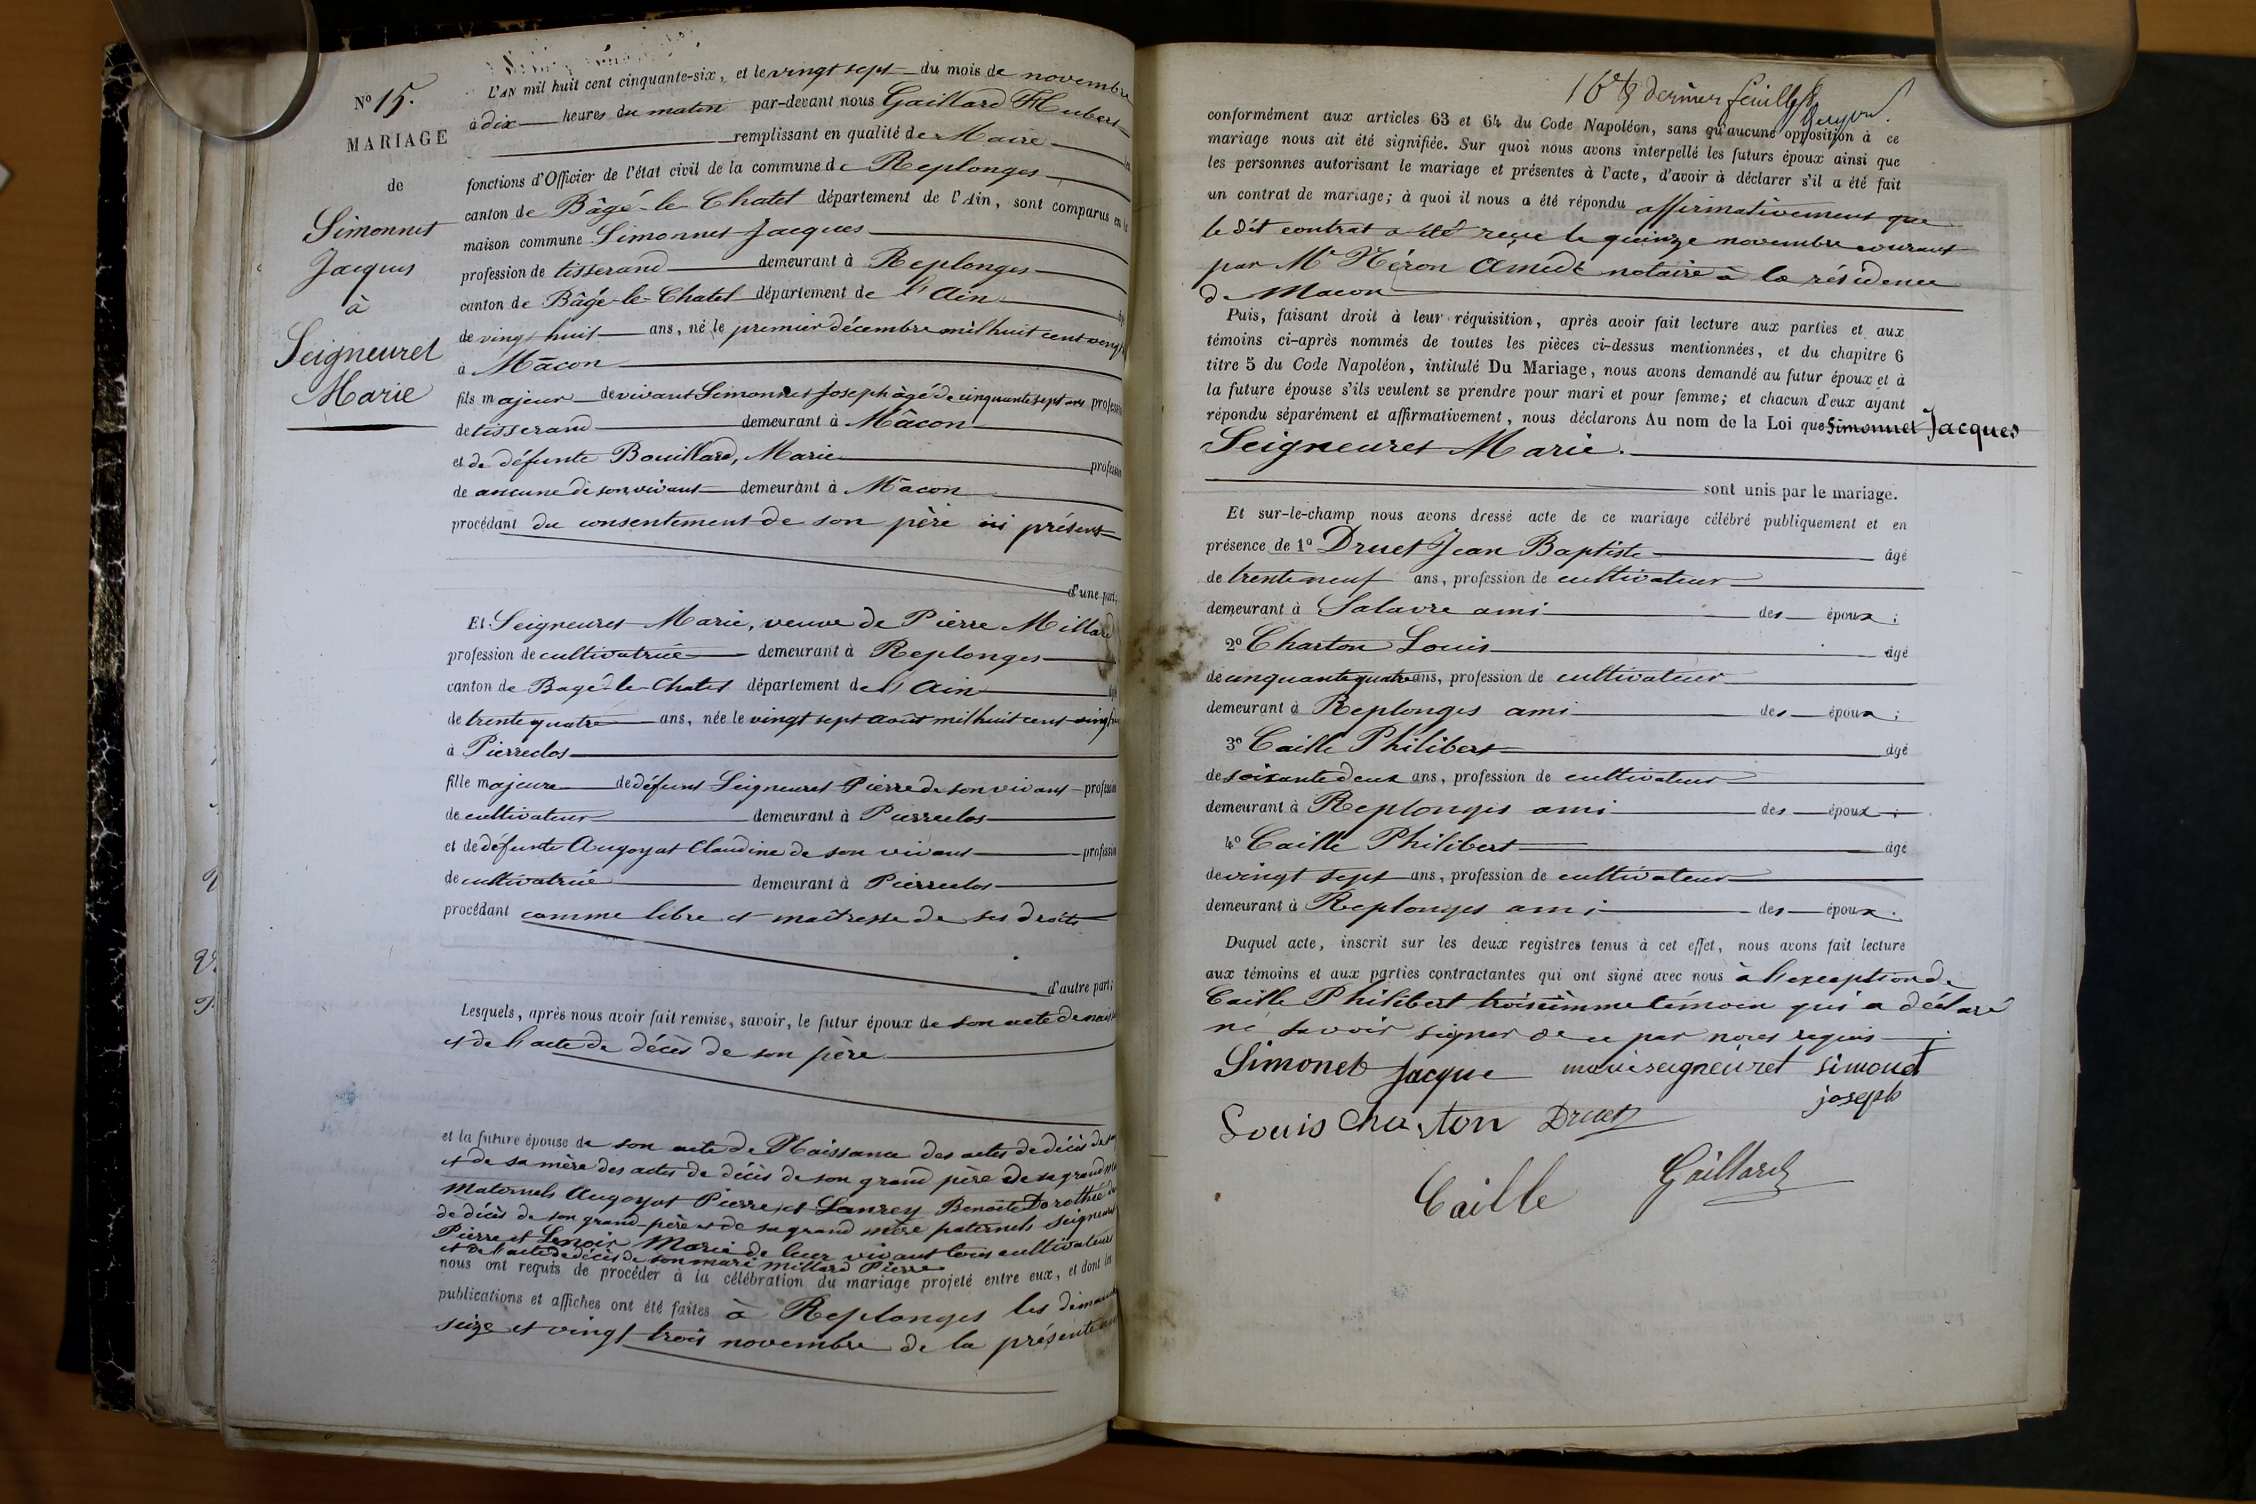 N° 15.
MARIAGE
de
Simonnet
Jacques
à
Seigneuret
Marie
L'AN mil huit cent cinquante-six, et le vingt sept du mois de novembre
à dix heures du matin par-devant nous Gaillard Hubert
remplissant en qualité de Maire les
fonctions d'Officier de l'état civil de la commune de Replonges
canton de Bâgé-le-Chatel département de l'Ain, sont comparus en la
maison commune Simonnet Jacques
profession de tisserand demeurant à Replonges
canton de Bâgé-le-Chatel département de l'Ain
de vingt huit ans, né le premier décembre mil huit cent vingt
à Mâcon
fils majeur de vivant Simonnet Joseph âgé de cinquante sept ans profession
de tisserand demeurant à Mâcon
et de défunte Bouillard, Marie profession
de aucune de son vivant demeurant à Mâcon
procédant du consentement de son père ici présent
d'une part;
Et Seigneuret Marie, veuve de Pierre Millard
profession de cultivatrice demeurant à Replonges
canton de Bagé-le-Chatel département de l'Ain âgé
de trente quatre ans, née le vingt sept août mil huit cent vingt
à Pierreclos
fille majeure de défunt Seigneuret Pierre de son vivant profession
de cultivateur demeurant à Pierreclos
et de défunte Augoyat Claudine de son vivant profession
de cultivatrice demeurant à Pierreclos
procédant comme libre et maîtresse de ses droits
d'autre part;
Lesquels, après nous avoir fait remise, savoir, le futur époux de son acte de naiss
et de l'acte de décès de son père
et la future épouse de son acte de Naissance des actes de décès de son
et de sa mère des actes de décès de son grand père de sa grand mère
Maternels Augoyat Pierre et Lanrey Benoîte Dorothée
de décès de son grand père et de sa grand mère paternels Seigneuret
Pierre et Lenoir Marie de leur vivant tous cultivateurs
et de l'acte de décès de son mari Millard Pierre
nous ont requis de procéder à la célébration du mariage projeté entre eux, et dont les
publications et affiches ont été faites à Replonges les dimanches
seize et vingt trois novembre de la présente année
16e & dernier feuillet
conformément aux articles 63 et 64 du Code Napoléon, sans qu'aucune opposition à ce
mariage nous ait été signifiée. Sur quoi nous avons interpellé les futurs époux ainsi que
les personnes autorisant le mariage et présentes à l'acte, d'avoir à déclarer s'il a été fait
un contrat de mariage; à quoi il nous a été répondu affirmativement que
le dit contrat a été reçu le quinze novembre courant
par Me Néron Amédé notaire à la résidence
de Macon
Puis, faisant droit à leur réquisition, après avoir fait lecture aux parties et aux
témoins ci-après nommés de toutes les pièces ci-dessus mentionnées, et du chapitre 6
titre 5 du Code Napoléon, intitulé Du Mariage, nous avons demandé au futur époux et à
la future épouse s'ils veulent se prendre pour mari et pour femme; et chacun d'eux ayant
répondu séparément et affirmativement, nous déclarons Au nom de la Loi que Simonnet Jacques
Seigneuret Marie.
sont unis par le mariage.
Et sur-le-champ nous avons dressé acte de ce mariage célébré publiquement et en
présence de 1° Druet Jean Baptiste âgé
de trente neuf ans, profession de cultivateur
demeurant à Salavre ami des époux;
2° Charton Louis âgé
de cinquante quatre ans, profession de cultivateur
demeurant à Replonges ami des époux;
3° Caille Philibert âgé
de soixante deux ans, profession de cultivateur
demeurant à Replonges ami des époux;
4° Caille Philibert âgé
de vingt sept ans, profession de cultivateur
demeurant à Replonges ami des époux.
Duquel acte, inscrit sur les deux registres tenus à cet effet, nous avons fait lecture
aux témoins et aux parties contractantes qui ont signé avec nous à l'exception de
Caille Philibert troisiemme témoin qui a déclaré
ne savoir signer de ce par nous requis
Simonet Jacque marie seigneuret simonet
joseph
Louis Charton Druet
Caille Gaillard